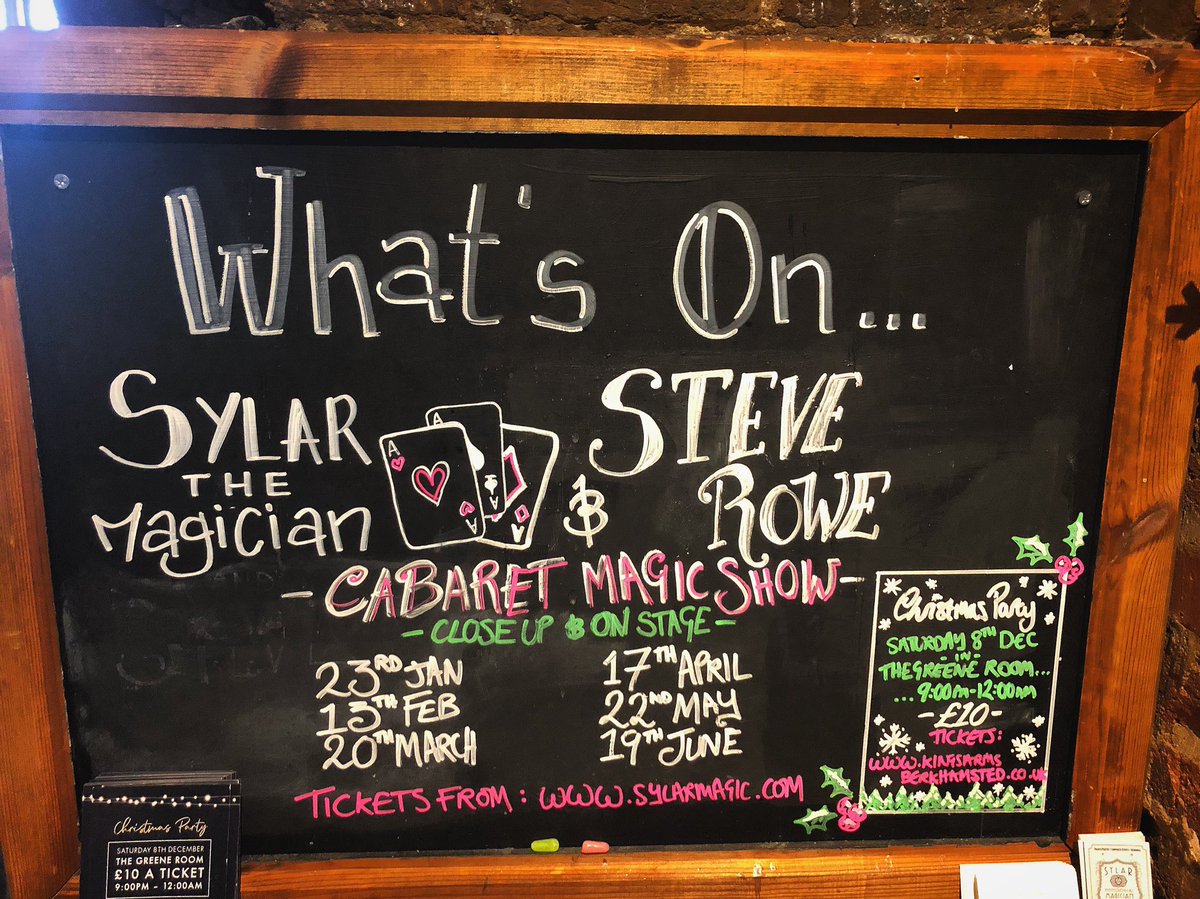 What's On...
SYLAR
THE
Magician
A
A
A
A
A
A
&
STEVE
ROWE
- CABARET MAGIC SHOW -
- CLOSE UP & ON STAGE -
23RD JAN
13TH FEB
20TH MARCH
17TH APRIL
22ND MAY
19TH JUNE
TICKETS FROM: WWW.SYLARMAGIC.COM
Christmas Party
SATURDAY 8TH DEC
- IN -
THE GREENE ROOM...
...9:00PM-12:00AM
- £10 -
TICKETS:
WWW.KINGSARMS
BERKHAMSTED.CO.UK
Christmas Party
SATURDAY 8TH DECEMBER
THE GREENE ROOM
£10 A TICKET
9:00PM - 12:00AM
SYLAR
MAGICIAN